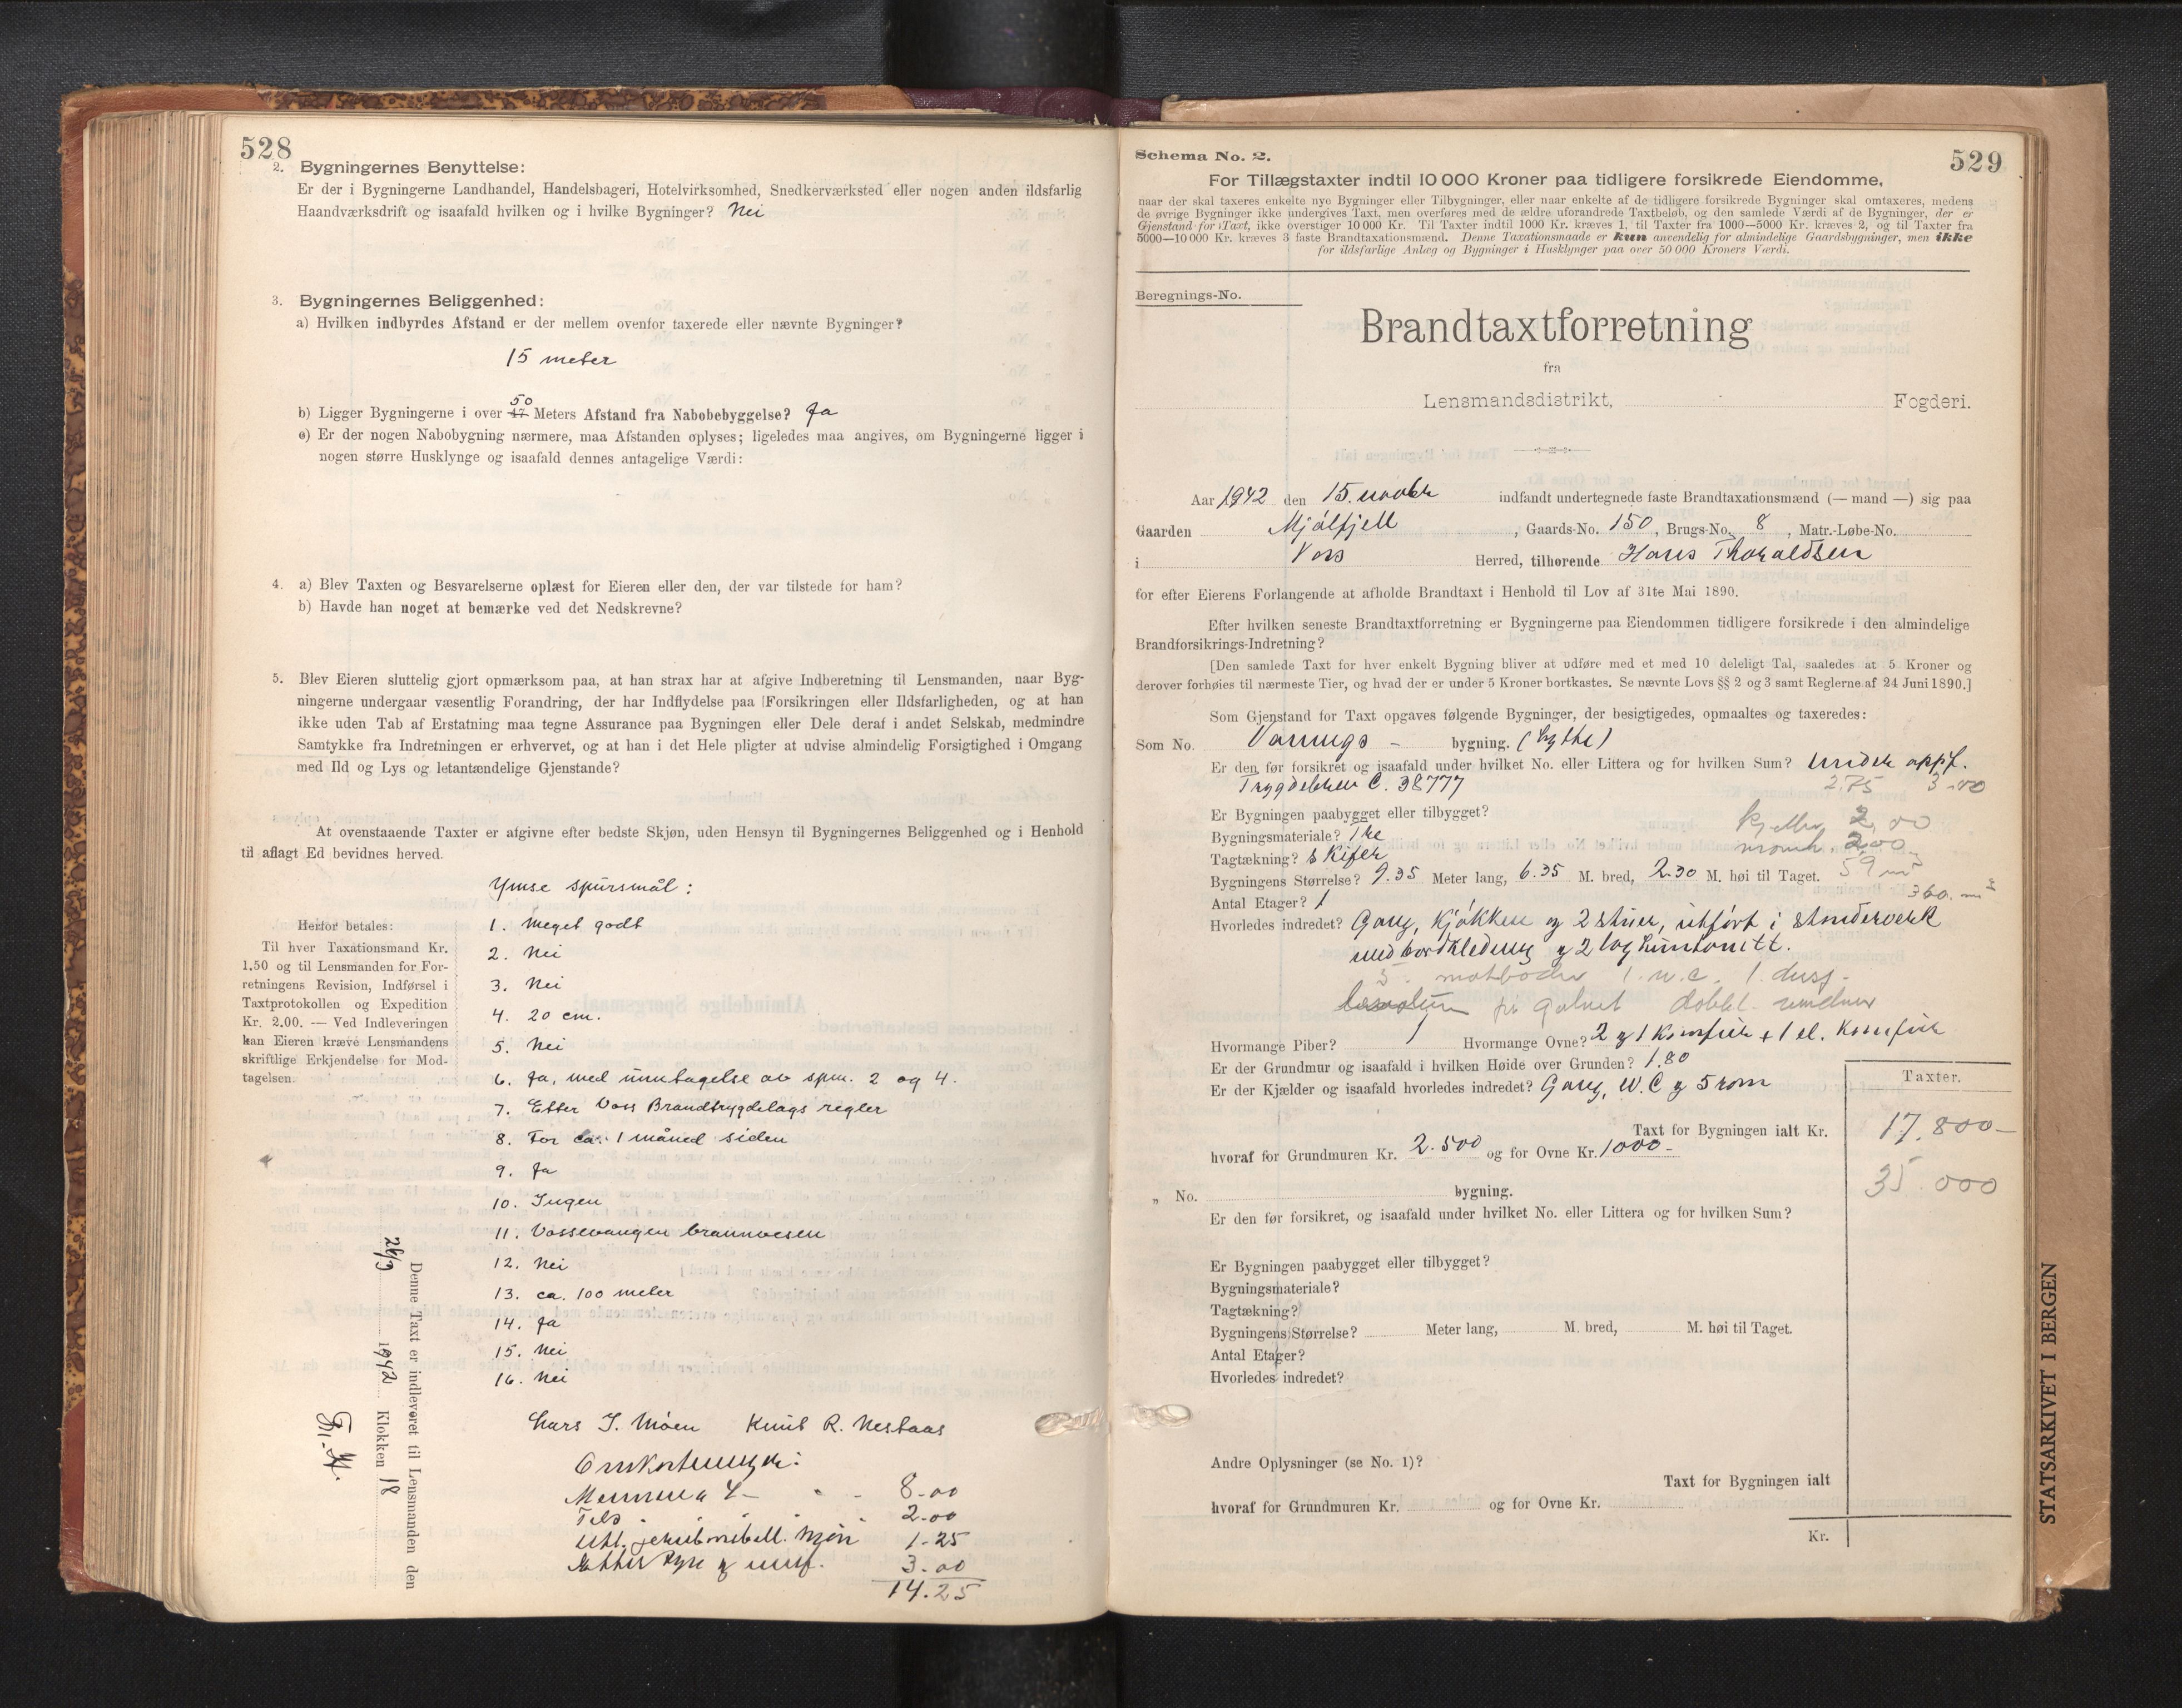 528
2. Bygningernes Benyttelse:
Er der i Bygningerne Landhandel, Handelsbageri, Hotelvirksomhed, Snedkerværksted eller nogen anden ildsfarlig
Haandværksdrift og isaafald hvilken og i hvilke Bygninger? Nei
3. Bygningernes Beliggenhed:
a) Hvilken indbyrdes Afstand er der mellem ovenfor taxerede eller nævnte Bygninger?
15 meter
50
b) Ligger Bygningerne i over 47 Meters Afstand fra Nabobebyggelse? Ja
c) Er der nogen Nabobygning nærmere, maa Afstanden oplyses; ligeledes maa angives, om Bygningerne ligger i
nogen større Husklynge og isaafald dennes antagelige Værdi:
4. a) Blev Taxten og Besvarelserne oplæst for Eieren eller den, der var tilstede for ham?
b) Havde han noget at bemærke ved det Nedskrevne?
5. Blev Eieren sluttelig gjort opmærksom paa, at han strax har at afgive Indberetning til Lensmanden, naar Byg-
ningerne undergaar væsentlig Forandring, der har Indflydelse paa Forsikringen eller Ildsfarligheden, og at han
ikke uden Tab af Erstatning maa tegne Assurance paa Bygningen eller Dele deraf i andet Selskab, medmindre
Samtykke fra Indretningen er erhvervet, og at han i det Hele pligter at udvise almindelig Forsigtighed i Omgang
med Ild og Lys og letantændelige Gjenstande?
At ovenstaaende Taxter er afgivne efter bedste Skjøn, uden Hensyn til Bygningernes Beliggenhed og i Henhold
til aflagt Ed bevidnes herved.
Ymse spursmål:
1. Meget godt
2. Nei
3. Nei
4. 20 cm.
5. Nei
6. Ja, med unntagelse av spm. 2 og 4.
7. Etter Voss Brandtrygdelags regler
8. For ca. 1 måned siden
9. Ja
10. Ingen
11. Vossevangen brannvesen
12. Nei
13. ca. 100 meter
14. Ja
15. Nei
16. Nei
Herfor betales:
Til hver Taxationsmand Kr.
1.50 og til Lensmanden for For-
retningens Revision, Indførsel i
Taxtprotokollen og Expedition
Kr. 2.00. — Ved Indleveringen
kan Eieren kræve Lensmandens
skriftlige Erkjendelse for Mod-
tagelsen.
Denne Taxt er indleveret til Lensmanden den
26/9 1942 Klokken 18
Lars I. Møen Knut R. Nestaas
Omkostninger:
8-00
2-00
1-25
3-00
14.25
529
Schema No. 2.
For Tillægstaxter indtil 10 000 Kroner paa tidligere forsikrede Eiendomme,
naar der skal taxeres enkelte nye Bygninger eller Tilbygninger, eller naar enkelte af de tidligere forsikrede Bygninger skal omtaxeres, medens
de øvrige Bygninger ikke undergives Taxt, men overføres med de ældre uforandrede Taxtbeløb, og den samlede Værdi af de Bygninger, der er
Gjenstand for Taxt, ikke overstiger 10 000 Kr. Til Taxter indtil 1000 Kr. kræves 1, til Taxter fra 1000—5000 Kr. kræves 2, og til Taxter fra
5000—10 000 Kr. kræves 3 faste Brandtaxationsmænd. Denne Taxationsmaade er kun anvendelig for almindelige Gaardsbygninger, men ikke
for ildsfarlige Anlæg og Bygninger i Husklynger paa over 50 000 Kroners Værdi.
Beregnings-No.
Brandtaxtforretning
fra
Lensmandsdistrikt, Fogderi.
Aar 1942 den 15. novbr indfandt undertegnede faste Brandtaxationsmænd (— mand —) sig paa
Gaarden Mjølfjell, Gaards-No. 150, Brugs-No. 8, Matr.-Løbe-No.
i Vors Herred, tilhørende Hans Thoraldsen
for efter Eierens Forlangende at afholde Brandtaxt i Henhold til Lov af 31te Mai 1890.
Efter hvilken seneste Brandtaxtforretning er Bygningerne paa Eiendommen tidligere forsikrede i den almindelige
Brandforsikrings-Indretning?
[Den samlede Taxt for hver enkelt Bygning bliver at udføre med et med 10 deleligt Tal, saaledes at 5 Kroner og
derover forhøies til nærmeste Tier, og hvad der er under 5 Kroner bortkastes. Se nævnte Lovs §§ 2 og 3 samt Reglerne af 24 Juni 1890.]
Som Gjenstand for Taxt opgaves følgende Bygninger, der besigtigedes, opmaaltes og taxeredes:
Som No. Vaanings - bygning. (hytte)
Er den før forsikret og isaafald under hvilket No. eller Littera og for hvilken Sum? under oppf.
Trygdebrev C. 38777 2.75 3-00
Er Bygningen paabygget eller tilbygget?
kjeller 2,00
Bygningsmateriale? Tre
2.00
Tagtækning? Skifer
59 m²
Bygningens Størrelse? 9.35 Meter lang, 6.35 M. bred, 2.30 M. høi til Taget.
360. m³
Antal Etager? 1
Hvorledes indredet? Gang, kjøkken og 2 stuer, utført i stenderverk
med bordkledning og 2 lag huntonitt.
5 matboder 1 w.c. 1 dusj-
på gulvet dobbl. vinduer
Hvormange Piber? 1 Hvormange Ovne? 2 og 1 komfur + 1 el. komfur
Er der Grundmur og isaafald i hvilken Høide over Grunden? 1.80
Er der Kjælder og isaafald hvorledes indredet? Gang, W.C og 5 rom
Taxter.
Taxt for Bygningen ialt Kr. 17.800-
hvoraf for Grundmuren Kr. 2.500 og for Ovne Kr. 1000-
35.000
„ No. bygning.
Er den før forsikret, og isaafald under hvilket No. eller Littera og for hvilken Sum?
Er Bygningen paabygget eller tilbygget?
Bygningsmateriale?
Tagtækning?
Bygningens Størrelse? Meter lang, M. bred, M. høi til Taget.
Antal Etager?
Hvorledes indredet?
Andre Oplysninger (se No. 1)?
Taxt for Bygningen ialt
hvoraf for Grundmuren Kr. og for Ovne Kr.
Kr.
STATSARKIVET I BERGEN